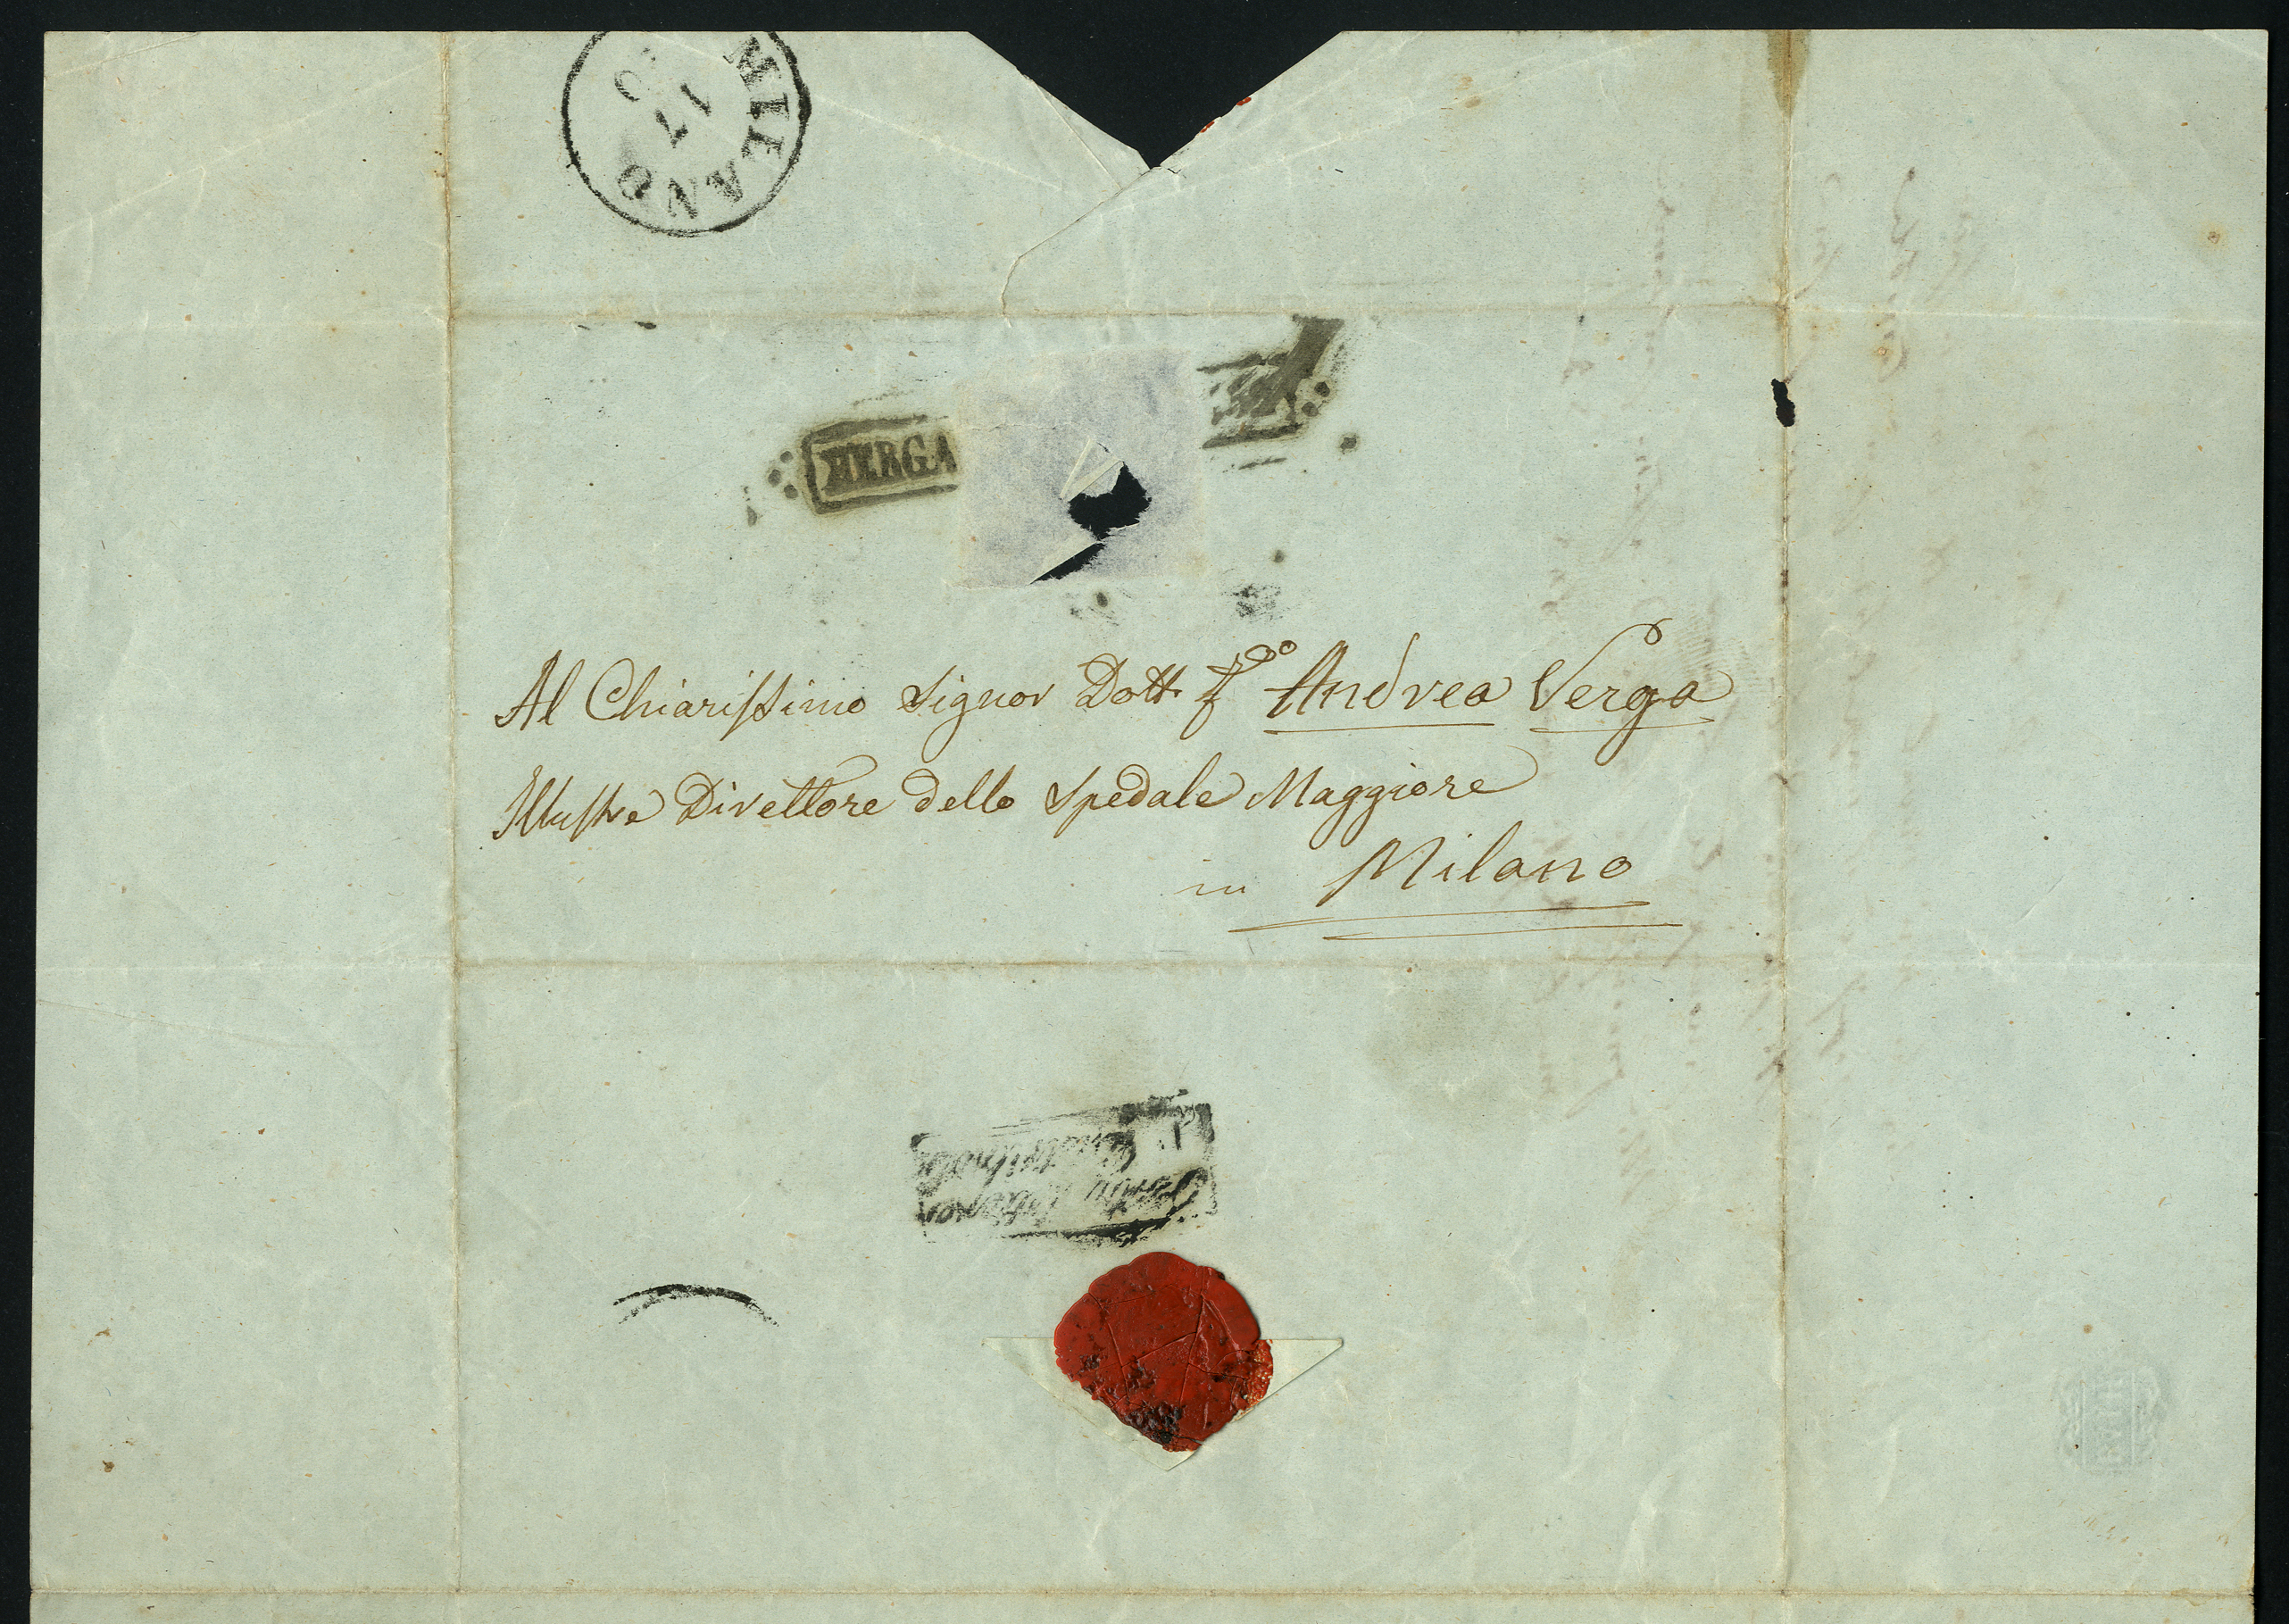 MILANO
17
BERGA
Al Chiarissimo Signor Dott. Andrea Verga
Illustre Direttore dello Spedale Maggiore
in Milano
Distribuz